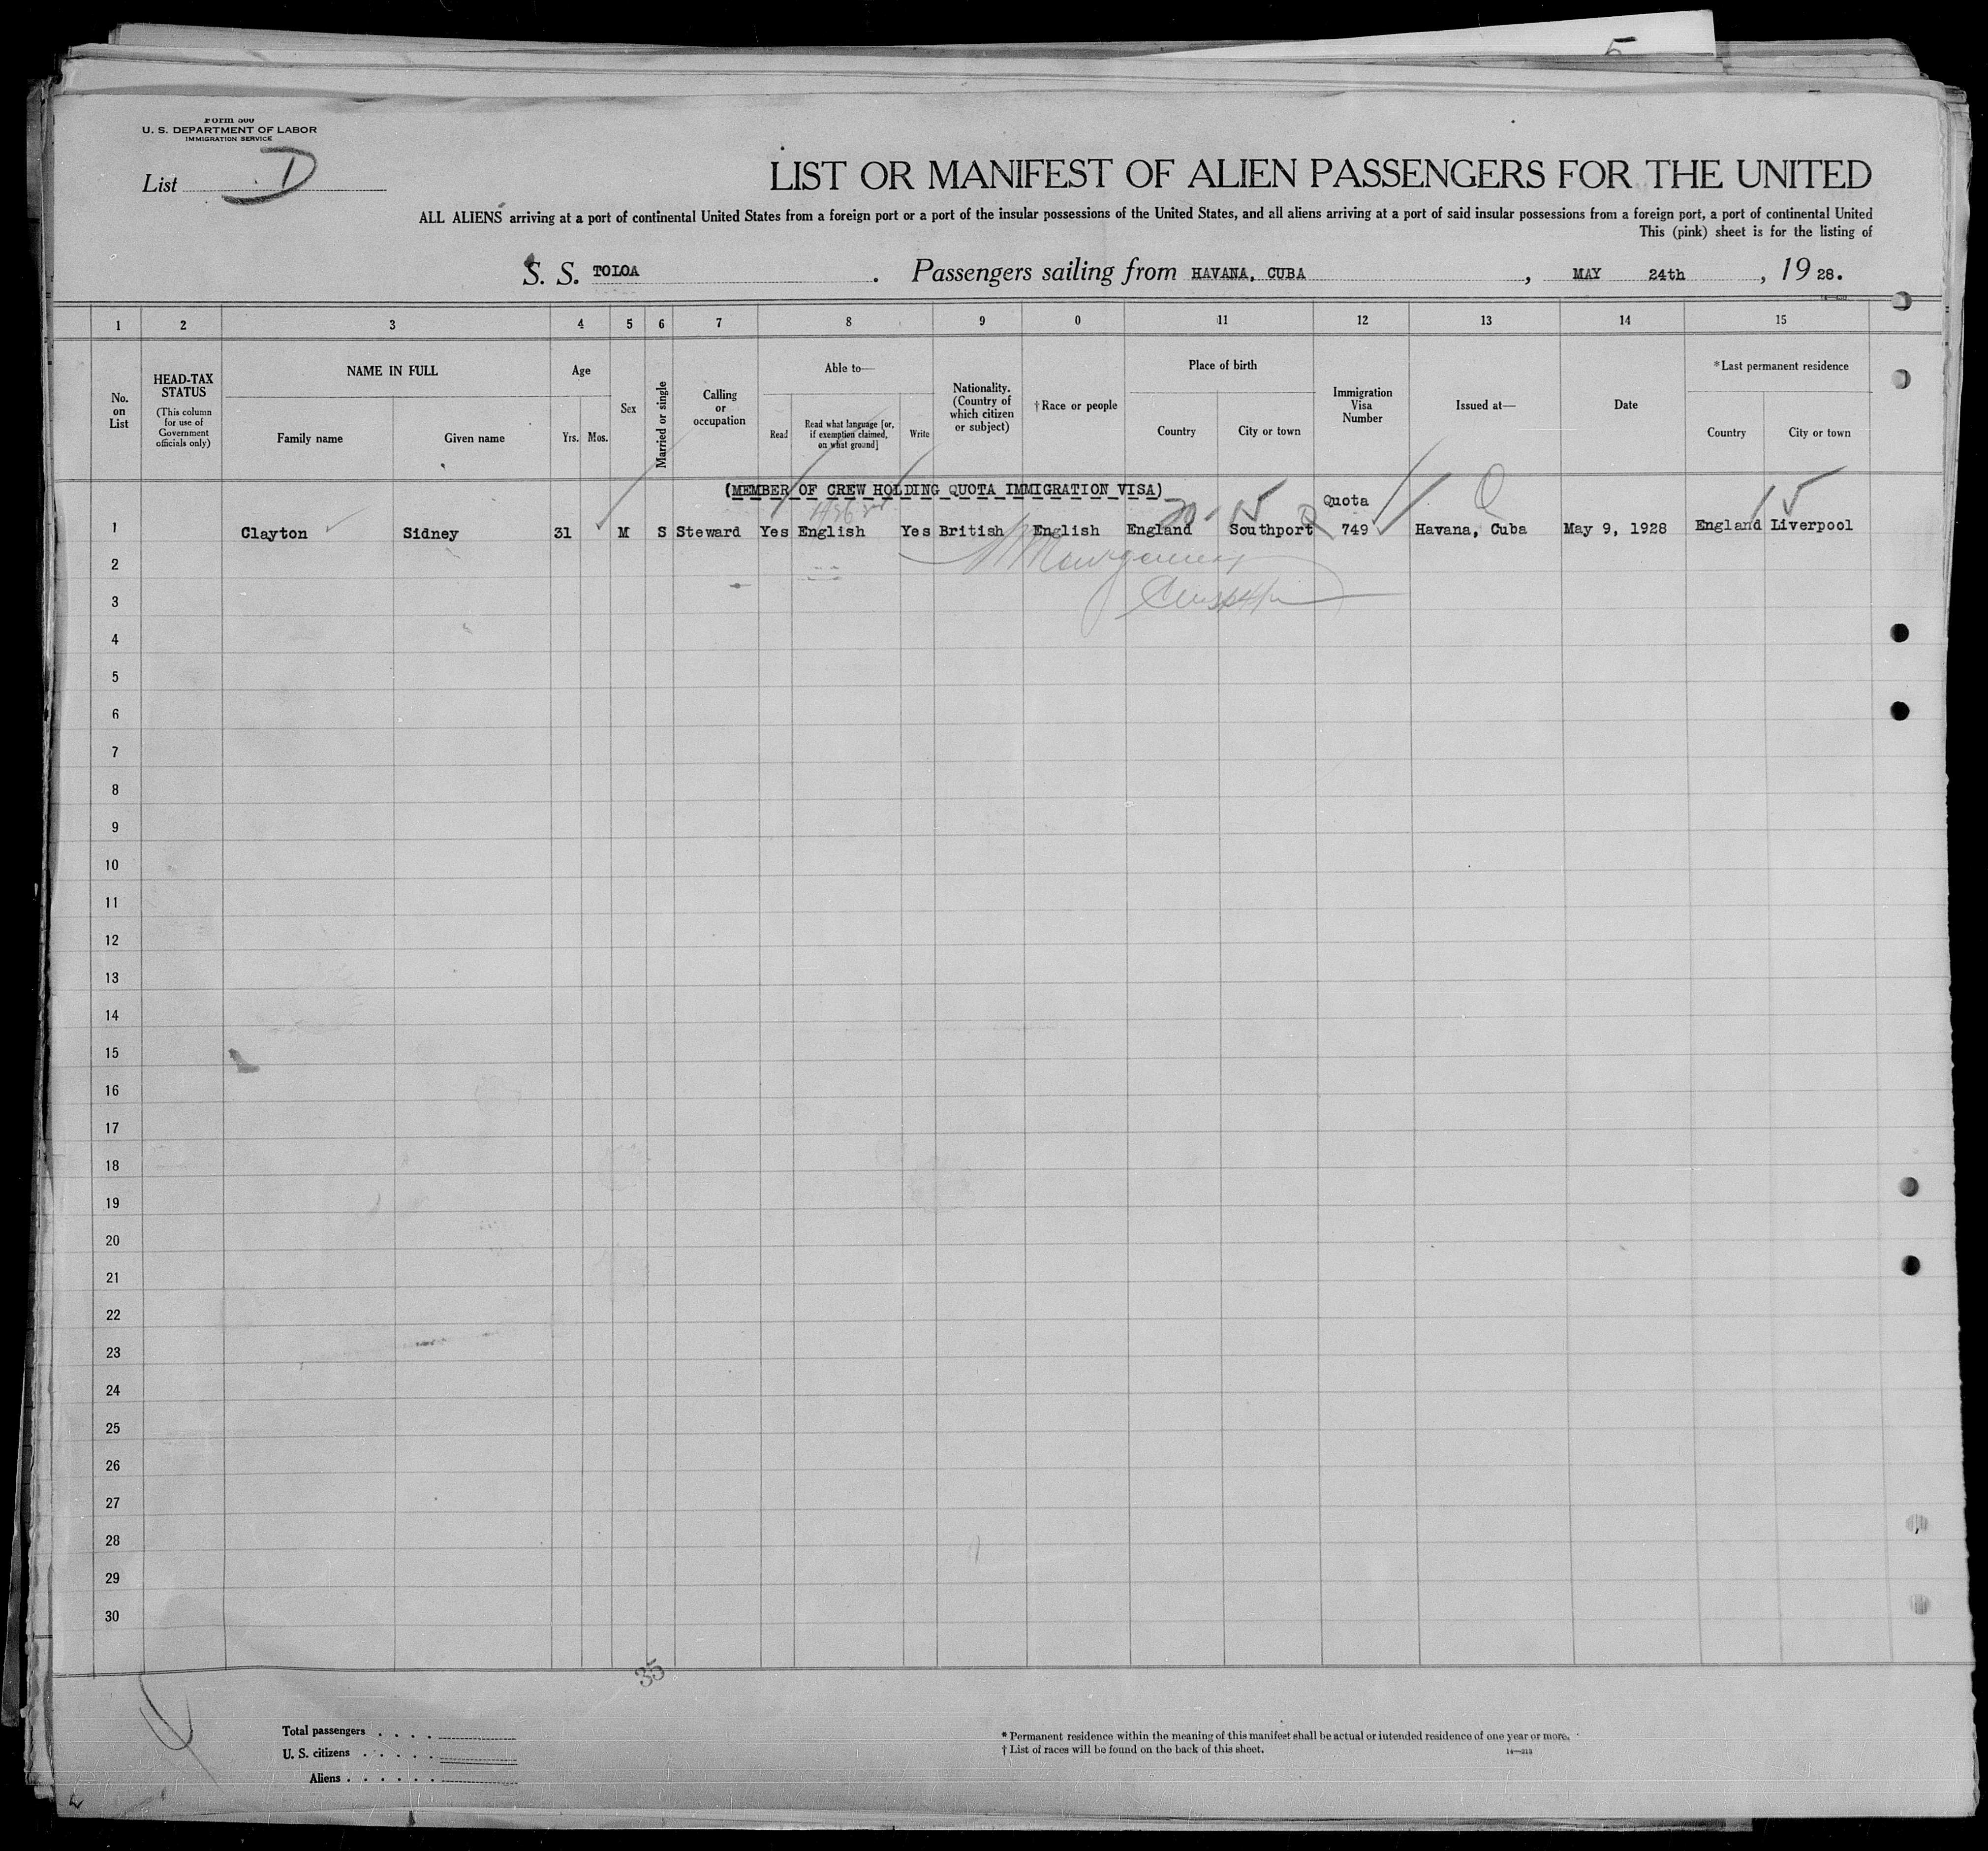 5
Form 500
U. S. DEPARTMENT OF LABOR
IMMIGRATION SERVICE
List D
LIST OR MANIFEST OF ALIEN PASSENGERS FOR THE UNITED
ALL ALIENS arriving at a port of continental United States from a foreign port or a port of the insular possessions of the United States, and all aliens arriving at a port of said insular possessions from a foreign port, a port of continental United
This (pink) sheet is for the listing of
S. S. TOLOA. Passengers sailing from HAVANA, CUBA, MAY 24th, 19 28.
1 2 3 4 5 6 7 8 9 0 11 12 13 14 15
No. on List
HEAD-TAX STATUS
(This column for use of Government officials only)
NAME IN FULL
Family name Given name
Age
Yrs. Mos.
Sex
Married or single
Calling or occupation
Able to—
Read
Read what language [or, if exemption claimed, on what ground]
Write
Nationality. (Country of which citizen or subject)
†Race or people
Place of birth
Country City or town
Immigration Visa Number
Issued at—
Date
*Last permanent residence
Country City or town
(MEMBER OF CREW HOLDING QUOTA IMMIGRATION VISA)
Quota
1 Clayton Sidney 31 M S Steward Yes English Yes British English England Southport 749 Havana, Cuba May 9, 1928 England Liverpool
2
3
4
5
6
7
8
9
10
11
12
13
14
15
16
17
18
19
20
21
22
23
24
25
26
27
28
29
30
35
Total passengers . . . .
U. S. citizens . . . . .
Aliens . . . . . .
* Permanent residence within the meaning of this manifest shall be actual or intended residence of one year or more.
† List of races will be found on the back of this sheet. 14—213